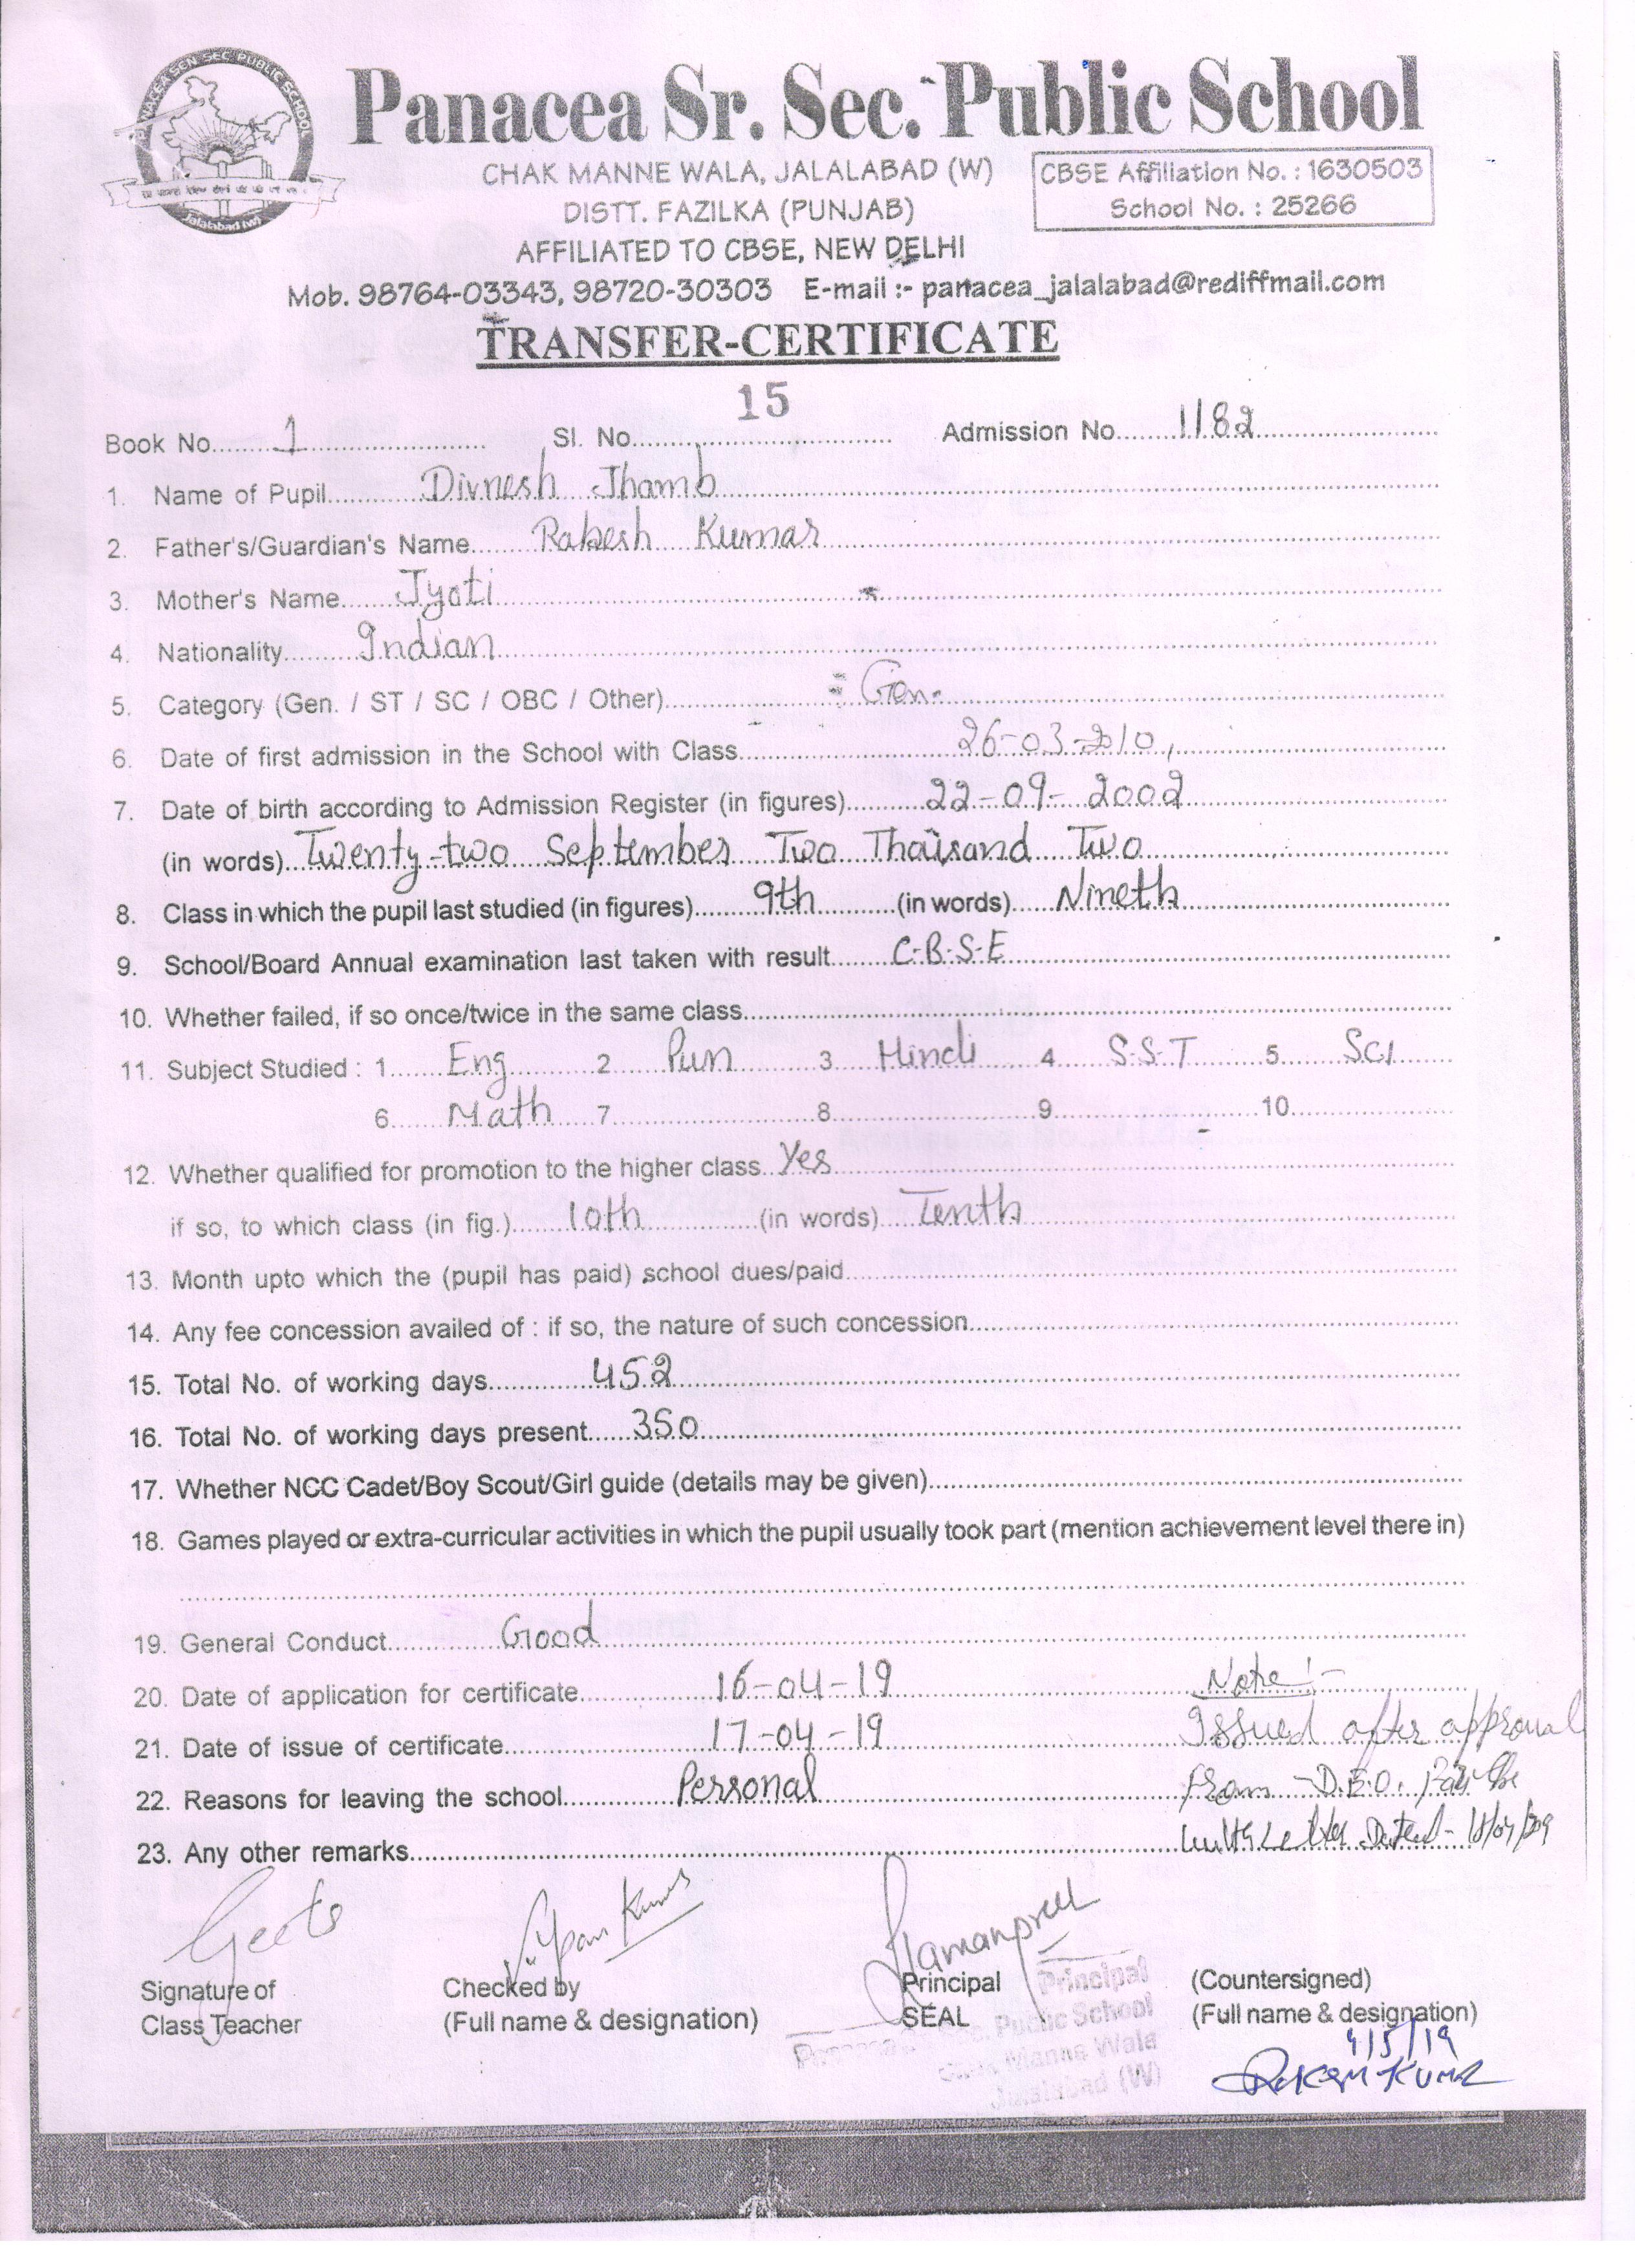 PANACEA SEN. SEC. PUBLIC SCHOOL
Jalalabad (W)
Panacea Sr. Sec. Public School
CHAK MANNE WALA, JALALABAD (W)
DISTT. FAZILKA (PUNJAB)
AFFILIATED TO CBSE, NEW DELHI
CBSE Affiliation No. : 1630503
School No. : 25266
Mob. 98764-03343, 98720-30303 E-mail :- panacea_jalalabad@rediffmail.com
TRANSFER-CERTIFICATE
15
Book No. 1 Sl. No. Admission No. 1182
1. Name of Pupil Divnesh Jhamb
2. Father's/Guardian's Name Rakesh Kumar
3. Mother's Name Jyoti
4. Nationality Indian
5. Category (Gen. / ST / SC / OBC / Other) Gen.
6. Date of first admission in the School with Class 26-03-2010,
7. Date of birth according to Admission Register (in figures) 22-09-2002
(in words) Twenty-two September Two Thousand Two
8. Class in which the pupil last studied (in figures) 9th (in words) Nineth
9. School/Board Annual examination last taken with result C.B.S.E
10. Whether failed, if so once/twice in the same class
11. Subject Studied : 1 Eng 2 Pun 3 Hindi 4 S.S.T 5. Sci
6. Math 7 8 9 10
12. Whether qualified for promotion to the higher class Yes
if so, to which class (in fig.) 10th (in words) Tenth
13. Month upto which the (pupil has paid) school dues/paid
14. Any fee concession availed of : if so, the nature of such concession
15. Total No. of working days 452
16. Total No. of working days present 350
17. Whether NCC Cadet/Boy Scout/Girl guide (details may be given)
18. Games played or extra-curricular activities in which the pupil usually took part (mention achievement level there in)
19. General Conduct Good
20. Date of application for certificate 16-04-19 Note :-
21. Date of issue of certificate 17-04-19 Issued after approval
22. Reasons for leaving the school Personal from D.E.O.
23. Any other remarks Letter Dated-
Geeta Kumar Ramanpreet
Signature of Checked by Principal Principal (Countersigned)
Class Teacher (Full name & designation) SEAL (Full name & designation)
Panacea Sr. Sec. Public School
Chak Manne Wala
Jalalabad (W)
4/5/19
Rakesh Kumar